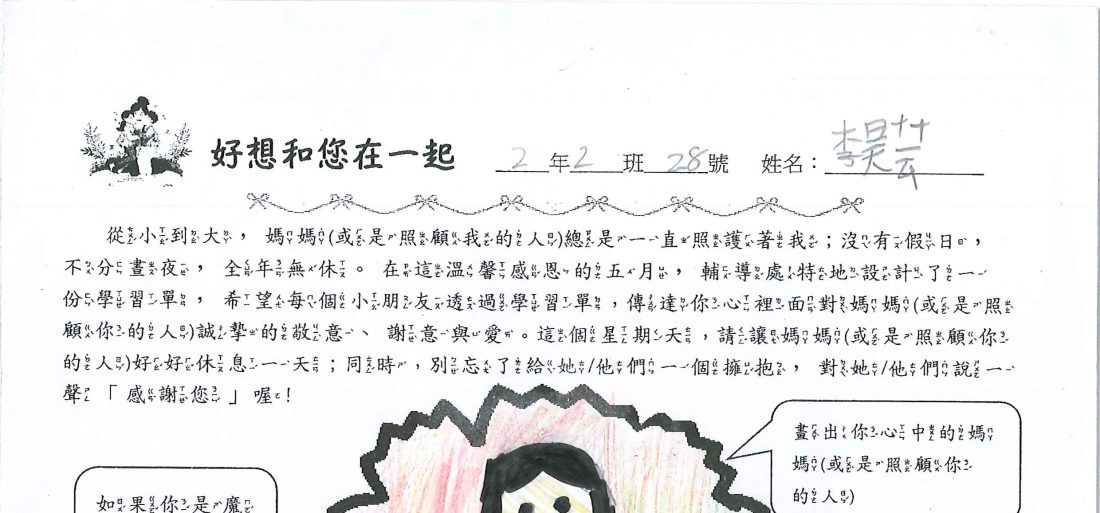 好想和您在一起 2年2班28號 姓名：李昊芸
從小到大，媽媽(或是照顧我的人)總是一直照護著我；沒有假日，
不分晝夜，全年無休。在這溫馨感恩的五月，輔導處特地設計了一
份學習單，希望每個小朋友透過學習單，傳達你心裡面對媽媽(或是照
顧你的人)誠摯的敬意、謝意與愛。這個星期天，請讓媽媽(或是照顧你
的人)好好休息一天；同時，別忘了給她/他們一個擁抱，對她/他們說一
聲「感謝您」喔！
畫出你心中的媽
媽(或是照顧你
的人)
如果你是魔